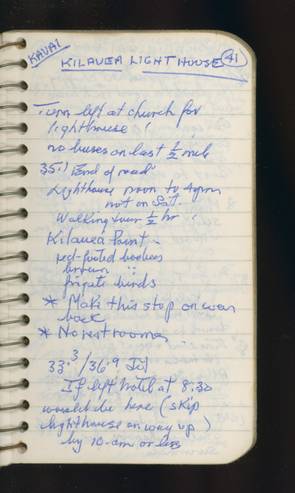 KAUAI
KILAUEA LIGHTHOUSE 41
Turn left at church for
lighthouse!
no buses on last ½ mile
35.1 End of road
Lighthouse noon to 4pm
not on Sat.
Walking tour ½ hr.
Kilauea Point -
red-footed boobies
brown "
frigate birds
* Make this stop on way
back
* No restrooms
33.3/36.9
If left hotel at 8:30
would be here (skip
lighthouse on way up)
by 10 am or less